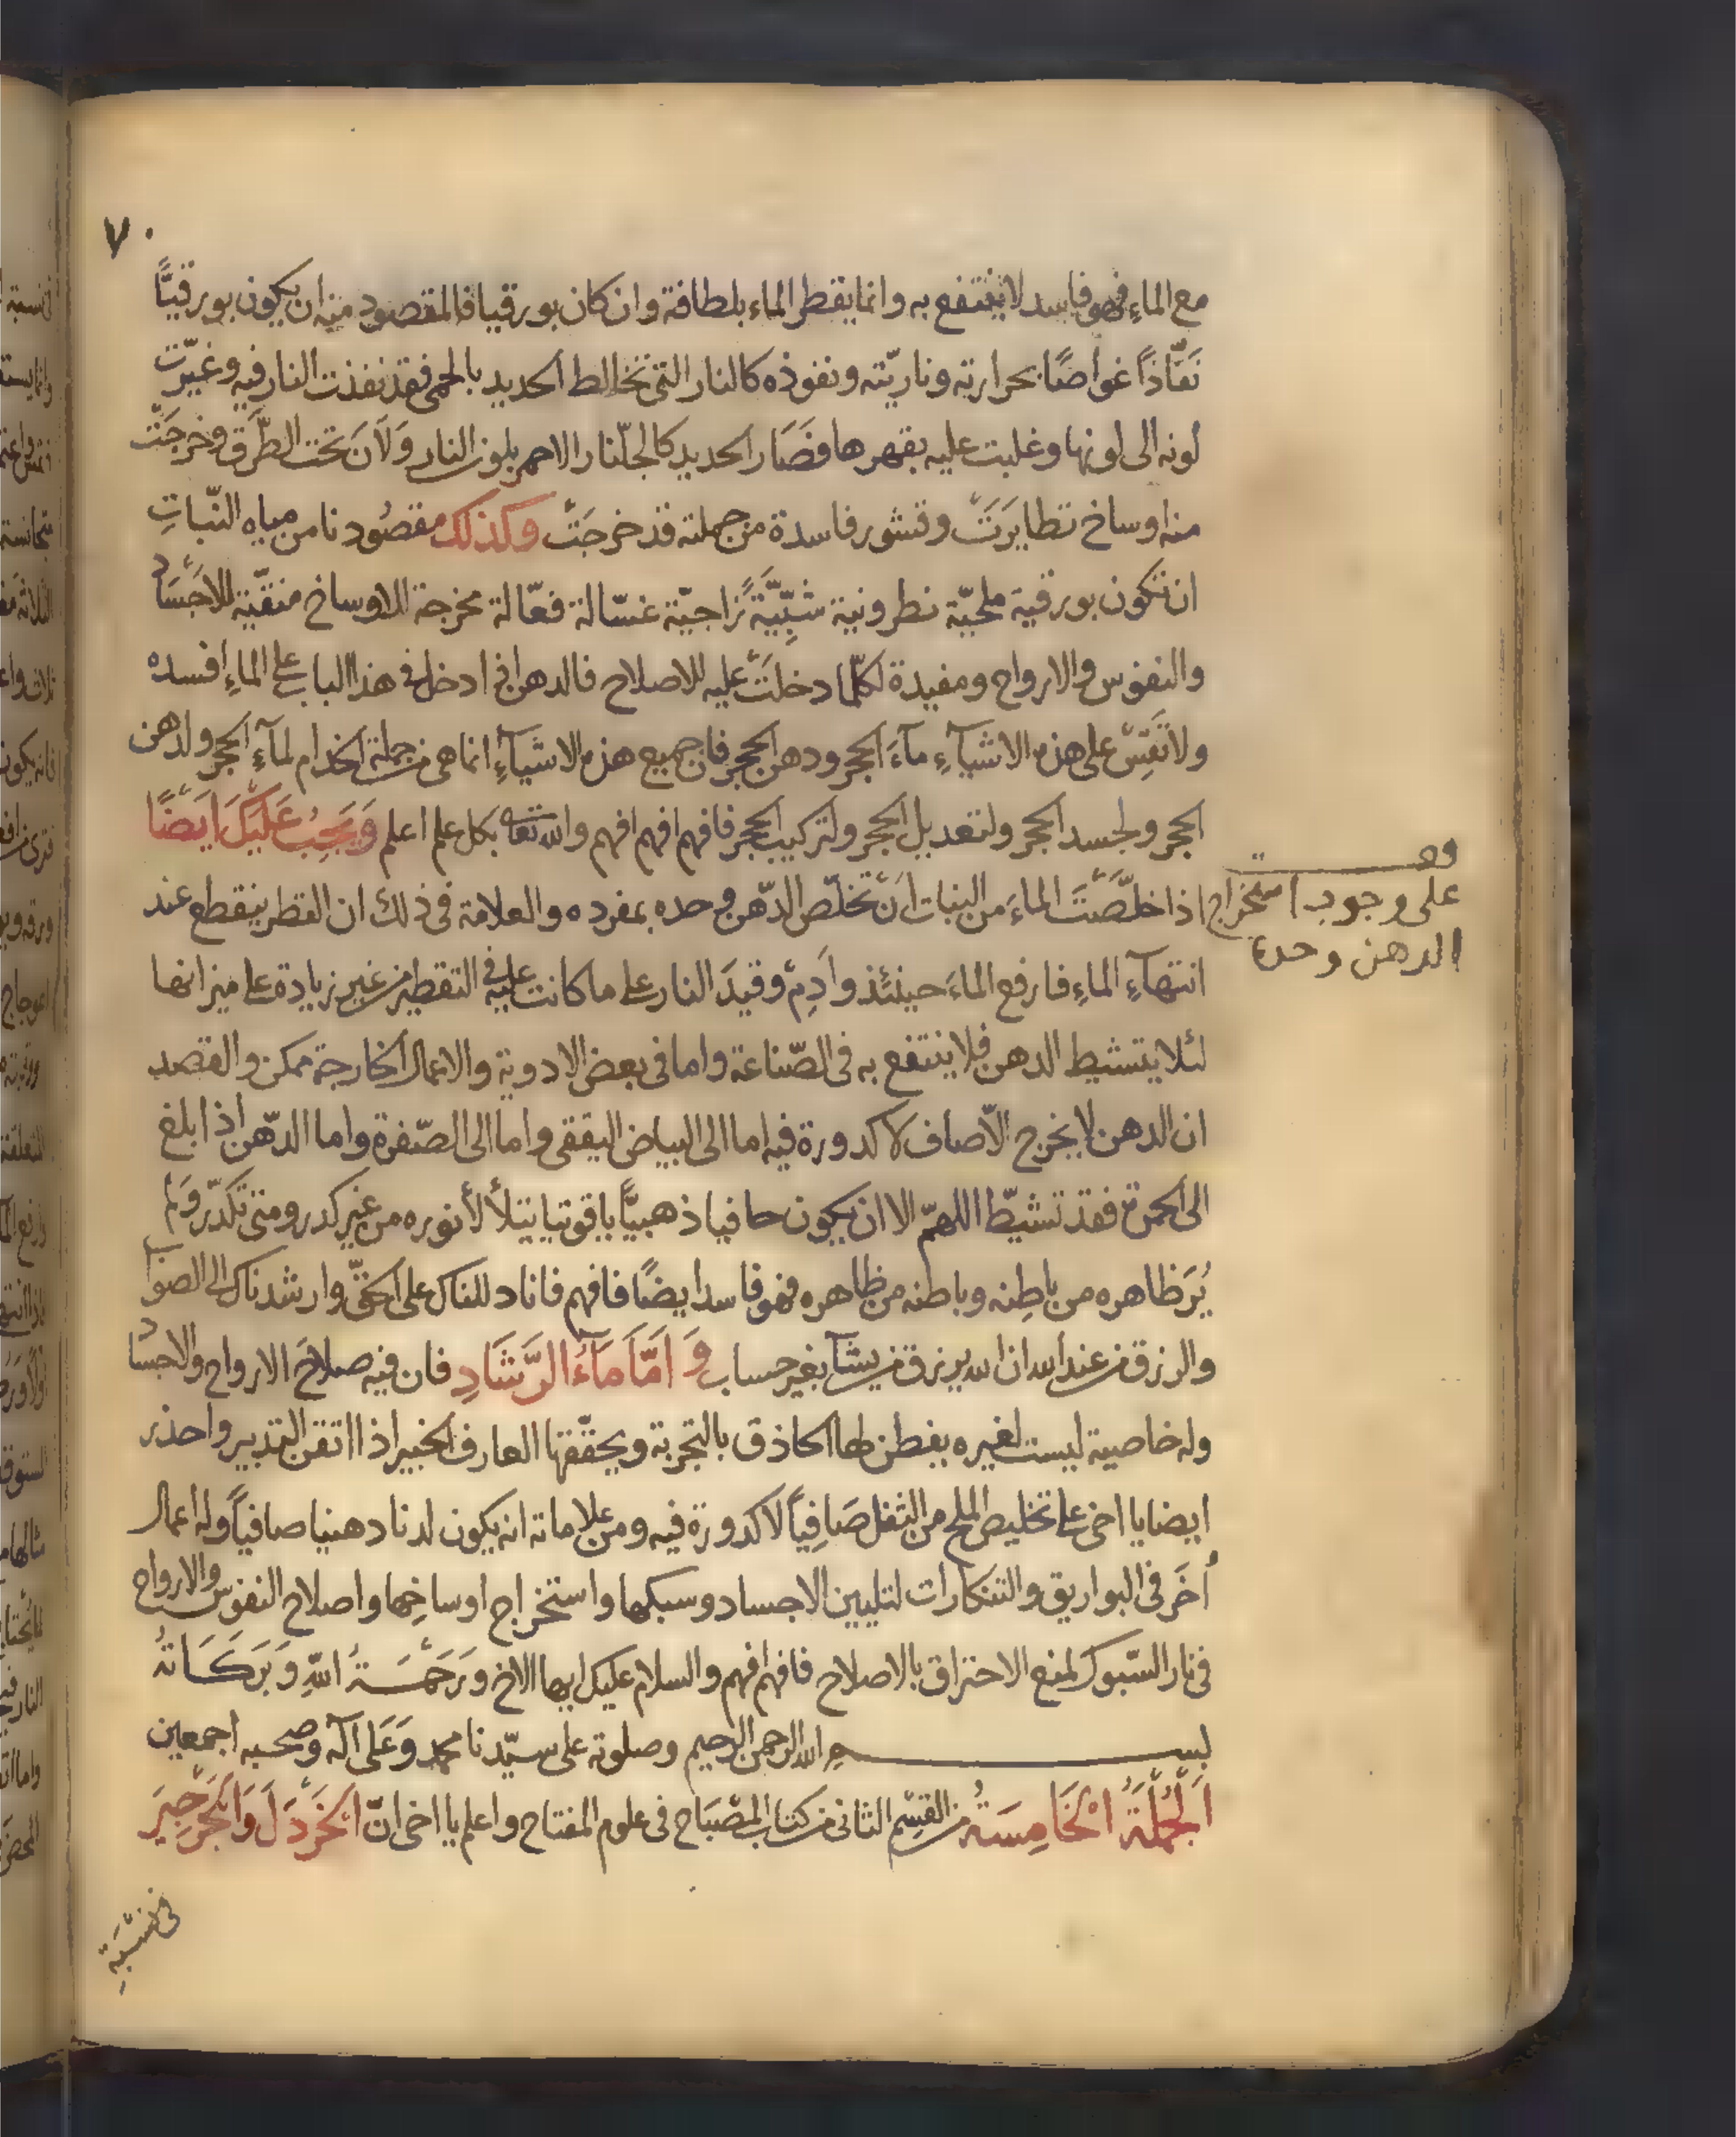 ٧٠
مع الماء فهو فاسد لا ينتفع به وانما يقطر الماء بلطافة وان كان بورقيا فالمقصود منه ان يكون بورقيًّا
نَفَّاذًا غواصًا بحرارته وناريّته ونفوذه كالنار التي تخالط الحديد بالحمى فقد نفذت النار فيه وغيّرت
لونه الى لونها وغلبت عليه بقهرها فصَار الحديد كالجلّنار الاحمر بلون النار وَلَانَ تحت الطَّرق وخرجَتْ
منه اوساخ تطايرَتْ وقشور فاسدة من جملته قد خرجَتْ وكذلك مقصُودنا من مياه النّباتِ
ان تكون بورقية ملحيّة نطرونية شَبِّيَّةً زاجيّة غسّالة فعّالة مخرجة للاوساخ منقّية للاجْسَاد
والنفوس والارواح ومفيدة لكلّما دخلَتْ عليه للاصلاح فالدهن اذا دخل في هذا الباب على الماءِ افسده
ولا تَقِسْ على هذه الاشيآءِ مآءَ الحجر ودهن الحجر فان جميع هذه الاشيآءِ انما هى من جملة الخدام لمآءِ الحجر ولدهن
الحجر ولجسد الحجر ولتعديل الحجر ولتركيب الحجر فافهم افهم افهم والله تعالى بكل علم اعلم وَيَجِبُ عَلَيْكَ اَيْضًا
اذا خلّصْتَ الماءَ من النبات اَنْ تخلّص الدّهن وحده بمفرده والعلامة فى ذلك ان القطر ينقطع عند
وقف
على وجوب استخراج
الدهن وحده
انتهآءِ الماءِ فارفع الماءَ حينئذ واَدِمْ وقيدَ النار على ما كانت عليه فى التقطير من غير زيادة على ميزانها
لئلا يتشيط الدهن فلا ينتفع به فى الصّناعة واما فى بعض الادوية والاعمال الخارجة ممكن والقصد
ان الدهن لا يخرج الّا صاف لا كدورة فيه اما الى البياض اليققى واما الى الصّفرة واما الدّهن اذا بلغ
الى الحمرة فقد تشيّط اللهمّ الا ان يكون صافيا ذهبيًّا ياقوتيا يتلألأ نوره من غير كدر ومتى تكدّر وَلَمْ
يُرَ ظاهره من باطِنه وباطنه من ظاهره فهو فاسد ايضًا فافهم فانا دللناك على الحقّ وارشدناك الى الصواب
والرزق من عند الله ان الله يرزق من يشآ بغير حساب وَاَمَّا مَآءُ الرَّشَادِ فان فيه صلاحَ الارواح والاجساد
وله خاصية ليست لغيره يفطن لها الحاذق بالتجربة ويحقّقها العارف الخبير اذا اتقن التدبير واحذر
ايضا يا اخى على تخليص الملح من الثفل صَافِيًا لا كدورة فيه ومن علاماته انه يكون لدنا دهنيا صافيًا وله اعمال
اُخَر فى البواريق والتنكارات لتليين الاجساد وسبكها واستخراج اوساخِها واصلاح النفوس والارواح
فى نار السّبوك لمنع الاحتراق بالاصلاح فافهم افهم والسلام عليك ايها الاخ ورَحْمَةُ اللهِ وَبَرَكَاتُهُ
بسم الله الرحمن الرحيم وصلوته على سيّدنا محمد وَعَلى آله وصحبه اجمعين
اَلْجُمْلَةُ الْخَامِسَةُ من القِسْم الثانى من كتاب المصْبَاح فى علوم المفتاح واعلم يا اخى انّ الْخَرْدَلَ وَالْجَرْجِيرَ
فى نسْبَةِ